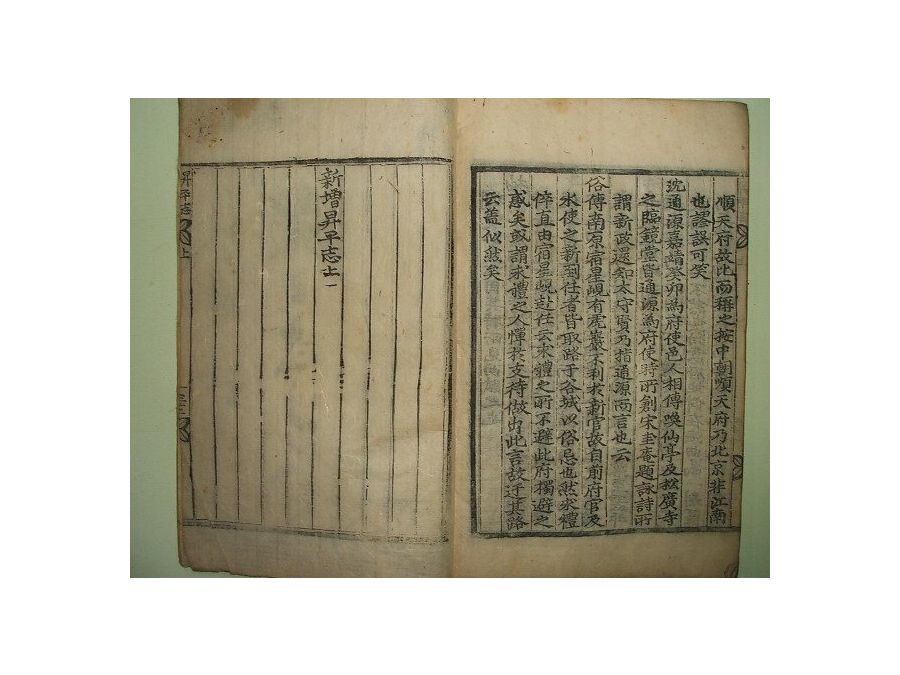 順天府故比而稱之按中朝順天府乃北京非江南
也謬誤可笑
沈通源嘉靖癸卯為府使邑人相傳喚仙亭及松廣寺
之臨鏡堂皆通源為府使時所創宋圭庵題詠詩所
謂新政還知太守賢乃指通源而言也云
俗傳南原宿星峴有虎巖不利於新官故自前府官及
水使之新到任者皆取路于谷城以俗忌也然求禮
倅直由宿星峴赴任云求禮之所不避此府獨避之
惑矣或謂求禮之人憚於支待做出此言故迂其路
云盖似然矣
新增昇平志上 一
昇平志 上